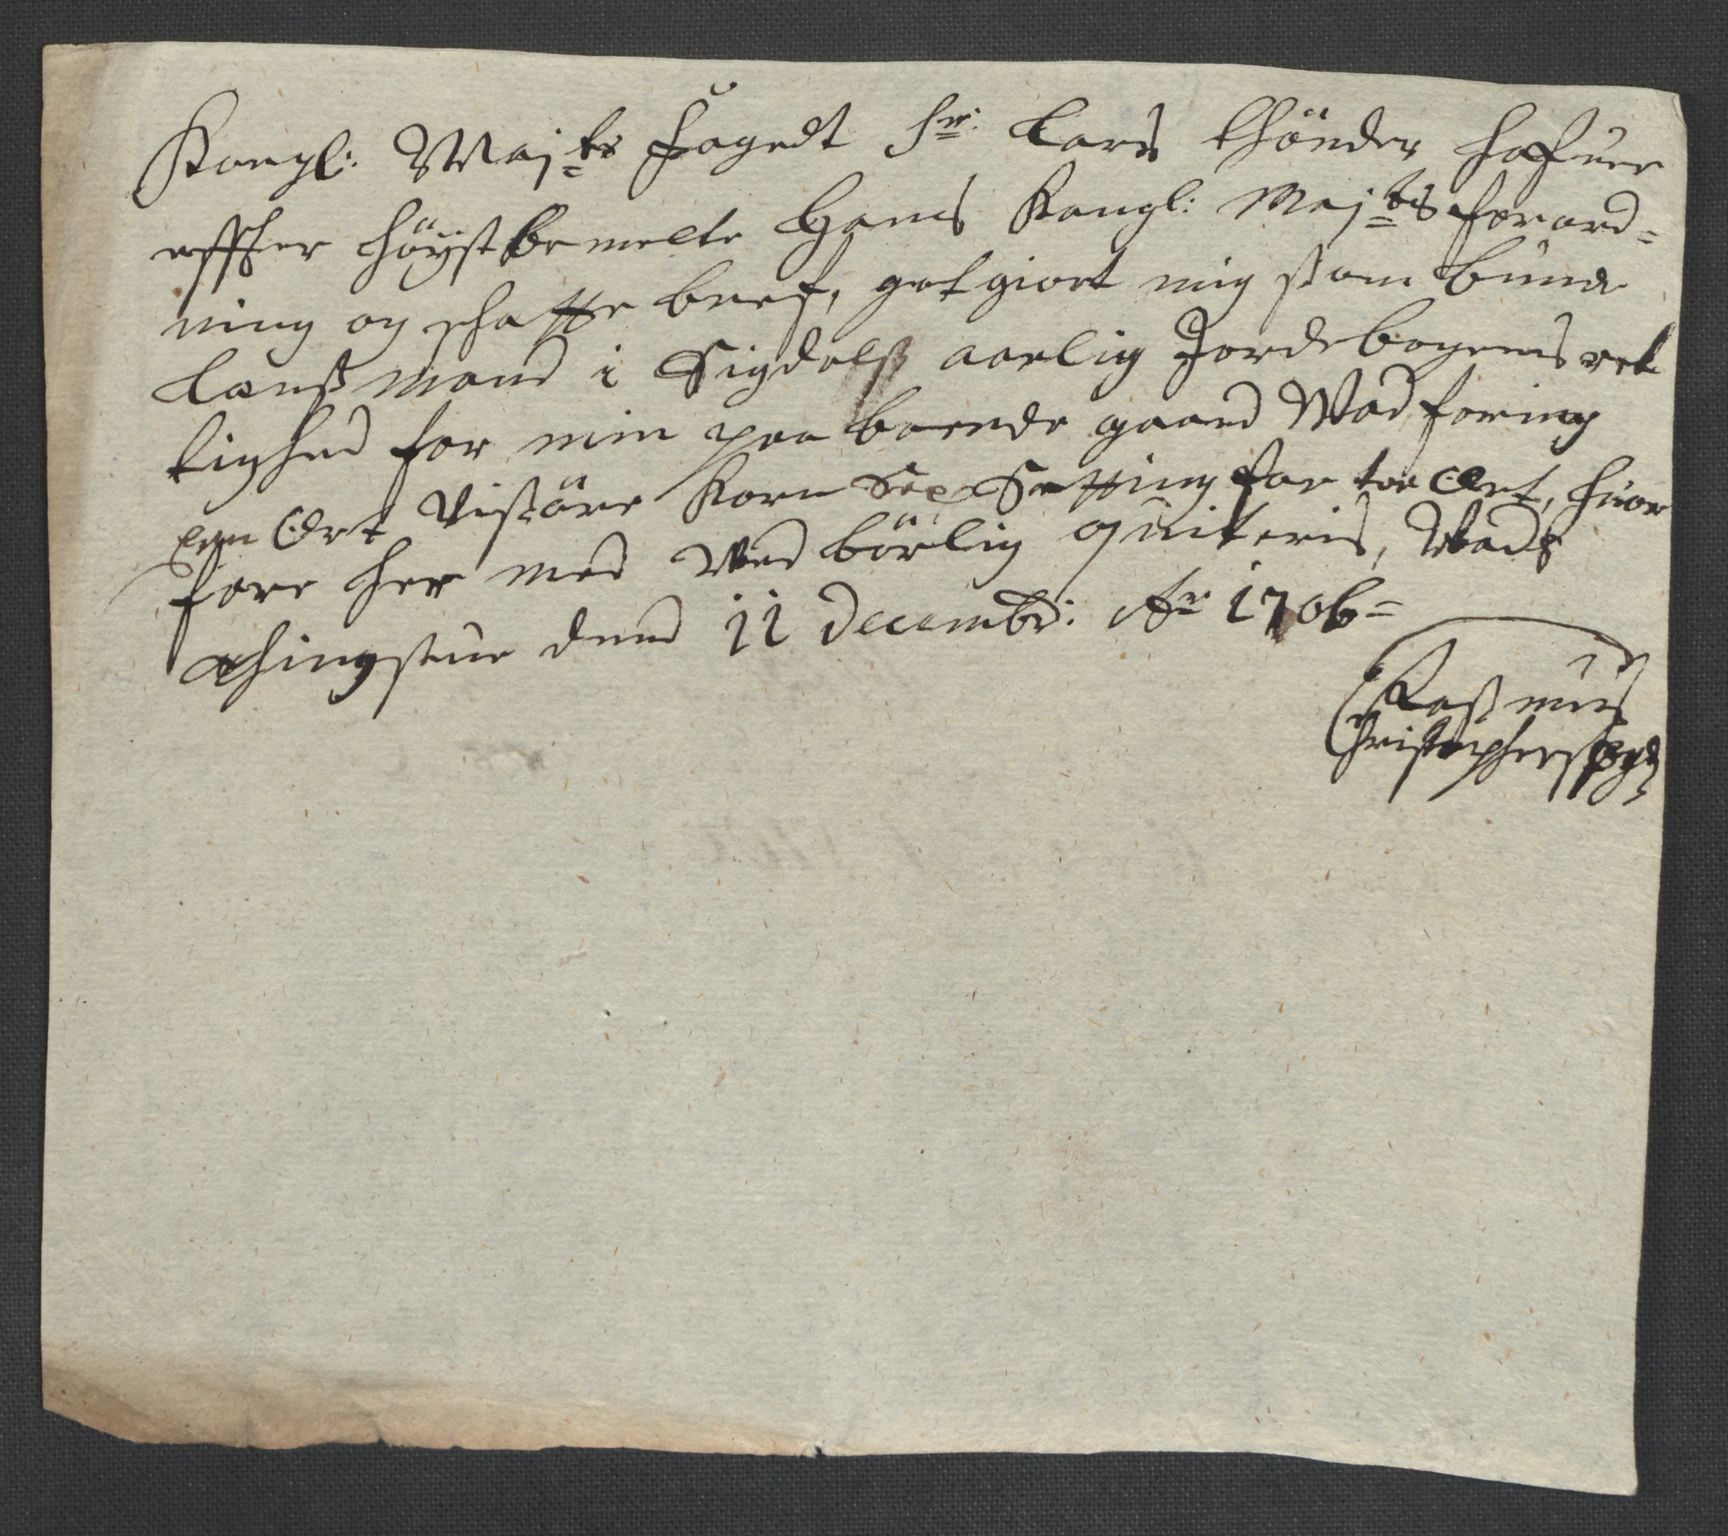 Kongl: Maj:ts Fogedt Sr: Lars Thönder hafuer
effter höystbemelte Hans Kongl: Maj:ts forord=
ning og schatte bref, got giort mig som bunde
Lænßmand i Sigdals aarlig Jordebogens ret
tighed for min paa boende gaard Wad foring
een Ort Vissöre Korn Sex Setting for toe Ort, huor
fore her med Ved börlig qviteris, Mads
thingstue dend 11 Decembr: Ao 1706=
Rasmus
Christophersen